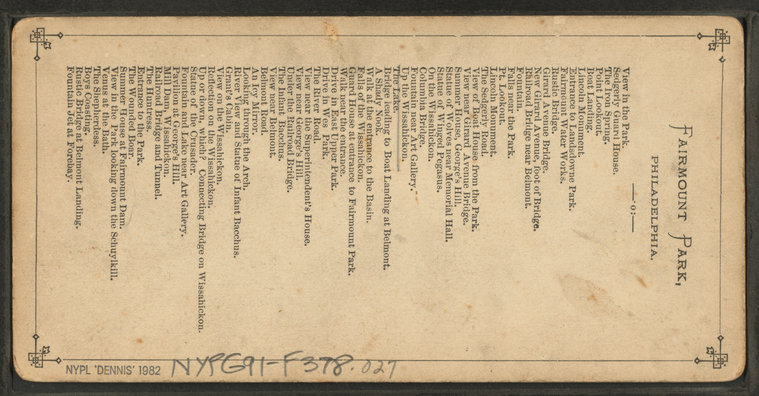 FAIRMOUNT PARK,
PHILADELPHIA.
—:o:—
View in the Park.
Sedgery Guard House.
The Tree Spring.
Point Lookout.
Boat Landing.
Lincoln Monument.
Entrance to Landsdowne Park.
Fairmount Water Works.
Rustic Bridge.
Girard Avenue Bridge.
New Girard Avenue, foot of Bridge.
Found Bridge.
Railroad Bridge near Belmont.
Falls near the Park.
Pt. Lookout.
Lincoln Monument.
The Sedgerly Road.
View of Boat House from the Park.
View near Girard Avenue Bridge.
Summer House, George's Hill.
Statue of Wolves near Memorial Hall.
Statue of Winged Pegasus.
On the Wissahickon.
Columbia Bridge.
Fountain near Art Gallery.
Up the Wissahickon.
The Lake.
Bridge leading to Boat Landing at Belmont.
A Shady Nook.
Walk at the entrance to the Basin.
Falls of Wissahickon.
Guard House at entrance to Fairmount Park.
Walk near the entrance.
Drive in East Upper Park.
Drive in West Park.
The River Road.
View near the Superintendent's House.
View near George's Hill.
Under the Railroad Bridge.
The Infant Bacchus.
View near Belmont.
Belmont Road.
An Ivy Mirror.
Looking through the Arch.
River View and Statue of Infant Bacchus.
Grant's Cabin.
View on the Wissahickon.
Reflection on the Wissahickon.
Up or down, which? Connecting Bridge on Wissahickon.
Statue of the Crusader.
Fountain and Lake near Art Gallery.
Pavilion at George's Hill.
Mill Dam, Wissahickon.
Railroad Bridge and Tunnel.
The Huntress.
Entrance to the Park.
The Wounded Boar.
Summer House at Fairmount Dam.
View in the Park, looking down the Schuylkill.
Venus at the Bath.
The Shepherdess.
Boys Coasting.
Rustic Bridge at Belmont Landing.
Fountain Jet at Forebay.
NYPL 'DENNIS' 1982
NYPG91-F378.027